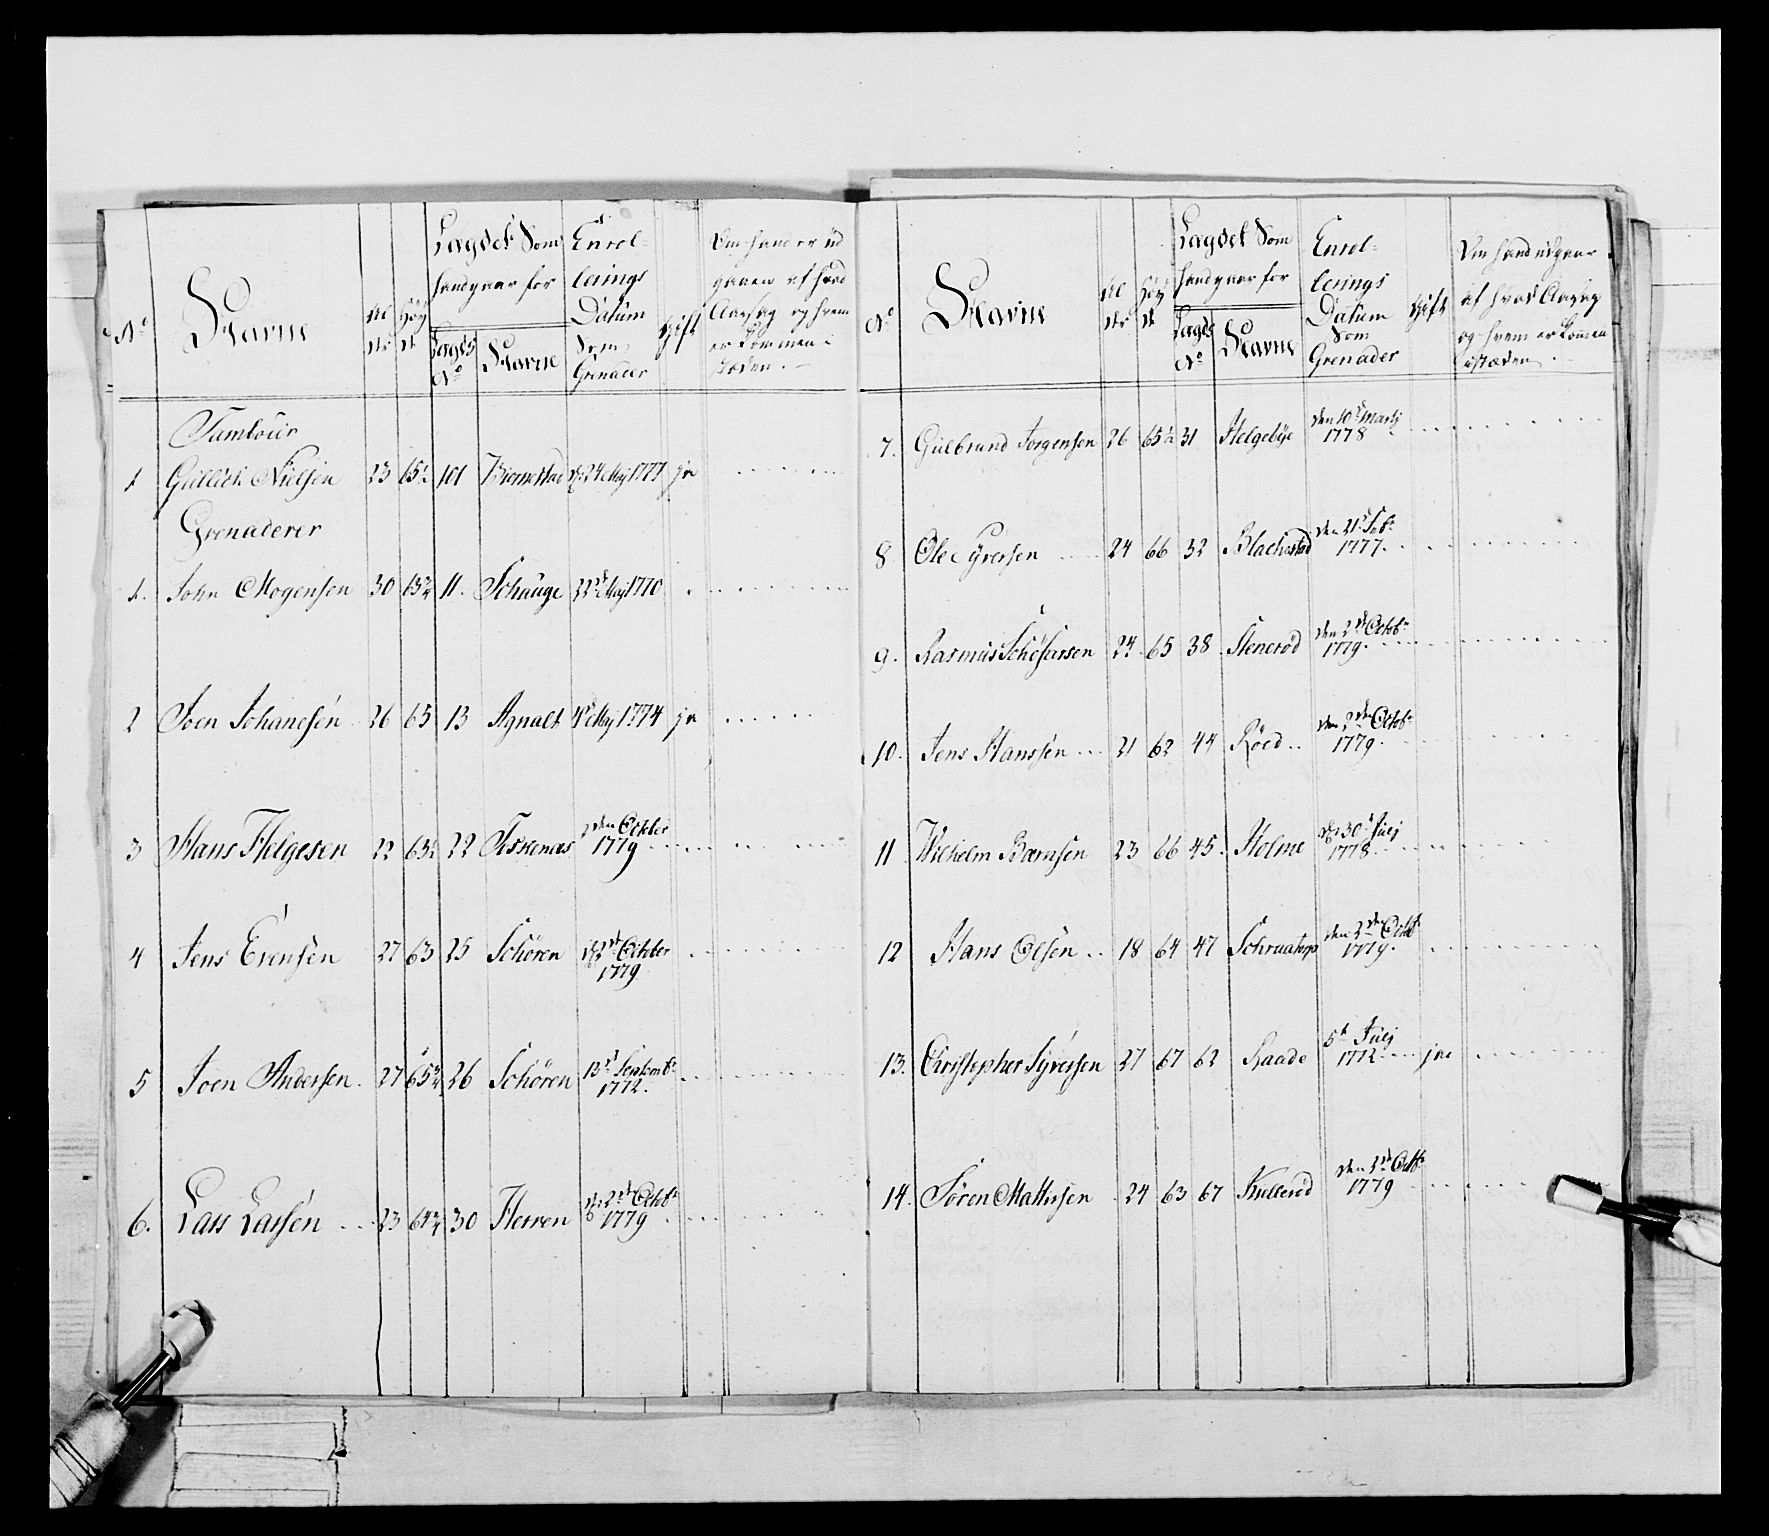 No
Navne
Al
der
Høy
de
Lagdet Som
hand gaar for
Lagds
No
Navne
Enrol-
lerings
Datum
Som
Grenader
Gift
Om hand er ud
gaaen af hvad
Aarsag og hvem
er kommen i
stæden.
Tambour
1 Gullich Nielsen 23 65½ 101 24 Maj 1777 ja
Grenaderer
1. John Mogensen 30 65¾ 11. Schauge 22de Maj 1770
2 Joen Johanesen 26 65 13 Agnalt 4de Maj 1774 ja
3 Hans Helgesen 22 63½ 22 Foskenæs 2den October
1779
4 Jens Evensen 27 63 25 Schøren d: 2de October
1779
5 Joen Andersen. 27 65¾ 26 Schøren 13de Septembr
1772.
6. Lars Larsen 23 64¾ 30 Herren d: 2de Octobr
1779
No
Navne
Al
der
Høy
de
Lagdet Som
hand gaar for
Lagds
No
Navne
Enrol-
lerings
Datum
Som
Grenader
Gift
Om hand udgaar
af hvad Aarsag
og hvem er kommen
i stæden.
7. Gulbrand Jorgensen 26 65½ 31 Helgebye den 10de Martj
1778
8 Ole Syversen 24 66 32 Blachestad den 21de
1777.
9. Rasmus 24 65 38 Stenerød den 2de Octobr
1779.
10. Jens Hanssen 21 62 44 Røed den 2den Octobr
1779.
11 Wilhelm Børnsen 23 66 45. Holme d: 30te Julj
1778
12 Hans Olsen 18 64 47 Schraatorp den 2den Octbr
1779.
13. Christopher Syversen 27 67 62 Raade 5te Julj
1772 ja
14. Søren Mathisen 24 63 67 Kullerød den 2de Octbr
1779